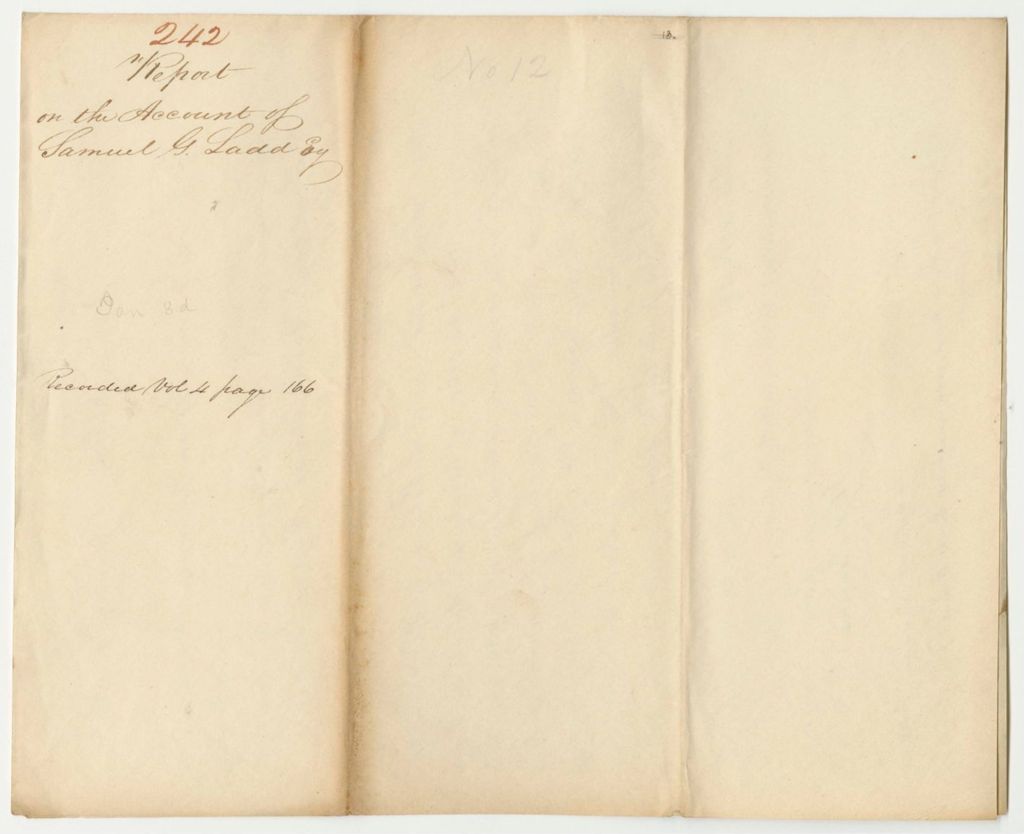 242
Report
on the Account of
Samuel G. Ladd Esq
Jan 3d
Recorded Vol 4 page 166
No 12
13.